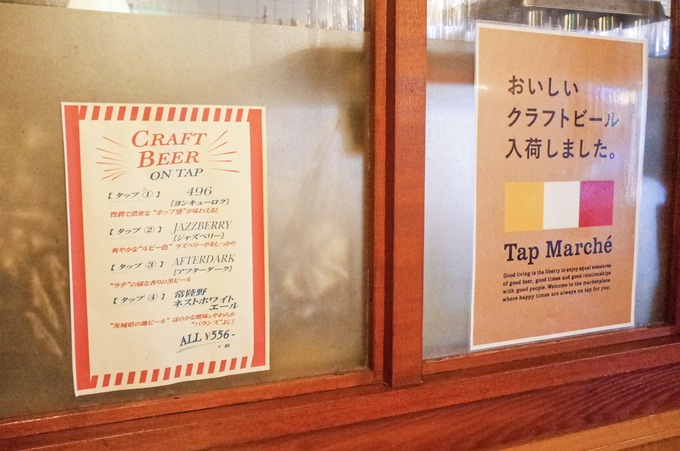 CRAFT
BEER
ON TAP
【タップ①】 496
[ヨンキューロク]
豊潤で濃密な"ホップ感"が味わえる!
【タップ②】 JAZZBERRY
[ジャズベリー]
爽やかな"ルビー色" ラズベリーが美しっかり
【タップ③】 AFTERDARK
[アフターダーク]
"ラテ"の様な香りの黒ビール
【タップ④】 常陸野
ネストホワイト
エール
"茨城県の地ビール" ほのかな酸味とやわらか
"バランス"よし!
ALL ¥556-
+税
おいしい
クラフトビール
入荷しました。
Tap Marché
Good living is the liberty to enjoy equal measures
of good beer, good times and good relationships
with good people. Welcome to the marketplace
where happy times are always on tap for you.